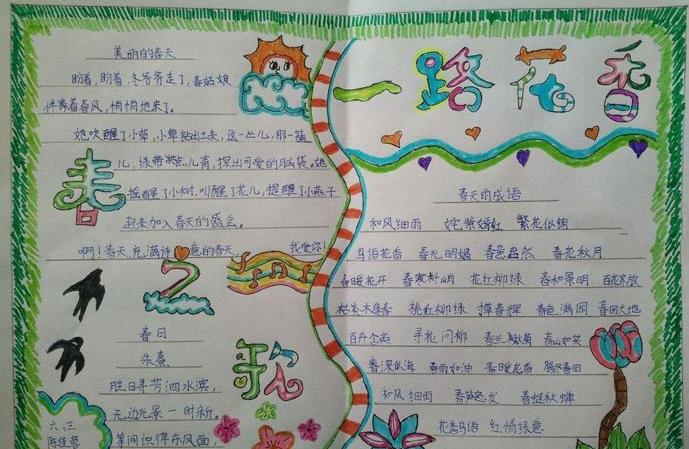 美丽的春天
盼着，盼着，冬爷爷走了，春姑娘
伴奏着春风，悄悄地来了。
她吹醒了小草，小草钻出土来，这一丛儿，那一簇
儿，探出可爱的脑袋。她
摇醒了小树，叫醒了花儿，提醒了小燕子
赶来加入春天的盛会。
啊！春天，充满诗意的春天，我爱你！
春
之
韵
春日
朱熹
胜日寻芳泗水滨，
无边光景一时新。
等闲识得东风面，
六、三
陈佳莹
一路花香
春天的成语
和风细雨 姹紫嫣红 繁花似锦
鸟语花香 春光明媚 春意盎然 春花秋月
春暖花开 春寒料峭 花红柳绿 春和景明 百花齐放
桃红柳绿 春色满园 春回大地
寻花问柳 春兰秋菊 春山如笑
春深似海 春雨如油 春暖花香
和风细雨 春蛙秋蝉
花香鸟语 红情绿意